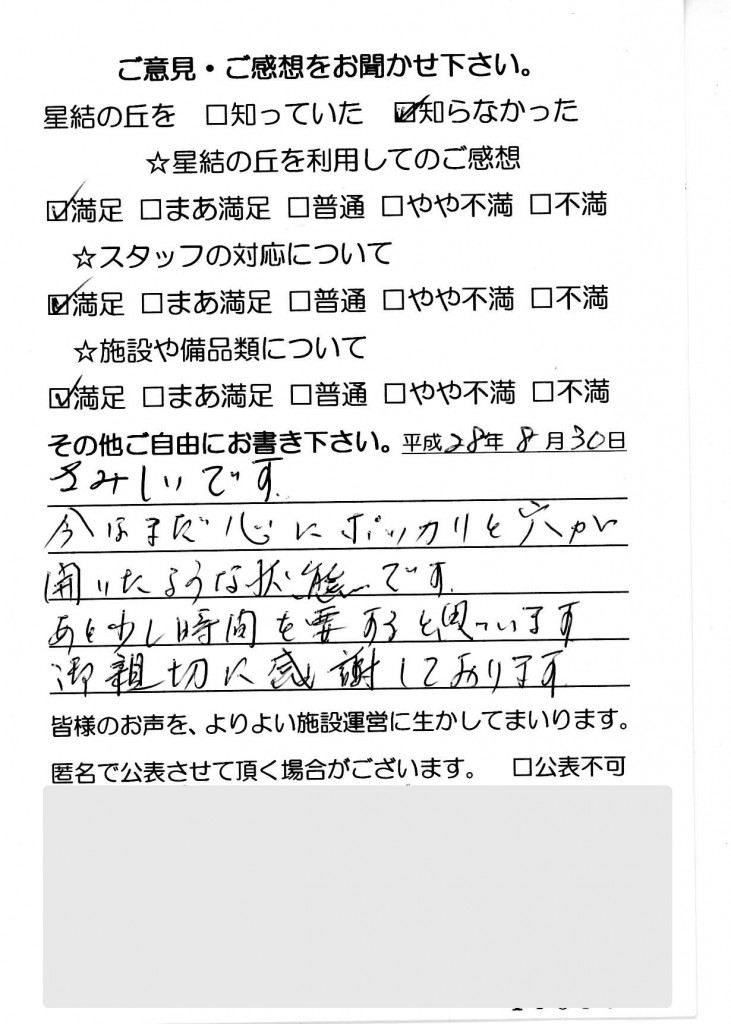 ご意見・ご感想をお聞かせ下さい。
星結の丘を □知っていた ☑知らなかった
☆星結の丘を利用してのご感想
☑満足 □まあ満足 □普通 □やや不満 □不満
☆スタッフの対応について
☑満足 □まあ満足 □普通 □やや不満 □不満
☆施設や備品類について
☑満足 □まあ満足 □普通 □やや不満 □不満
その他ご自由にお書き下さい。平成28年8月30日
さみしいです。
今はまだ心にポッカリと穴が
開いたような状態です。
あと少し時間を要すると思っています
御親切に感謝しております。
皆様のお声を、よりよい施設運営に生かしてまいります。
匿名で公表させて頂く場合がございます。 □公表不可